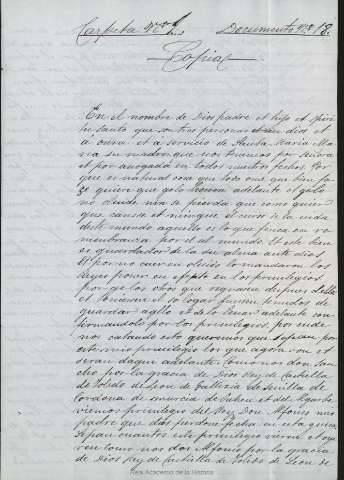 Carpeta nº 8 Documento nº 18.
Copia
En el nombre de Dios padre et fijo et spiri
tu santo que son tres personas et un dios et
a onra et a servicio de Santa Maria Ma
ria su madre que nos tenemos por señora
et por avogada en todos nuestros fechos. Por
que es natural cosa que todo ome que bien fa
ze quiere que gelo lieven adelante et gelo
no olvide nin se pierda que como quier
que canse et mingue el curso de la vida
deste mundo aquello es lo que finca en re
membranza por el al mundo. Et este bien
es guardador de la su alma ante dios
Et por no caer en olvido lo mandaron los
Reyes poner en escripto en los previlegios
por que los otros que regnasen despues dellos
et toviesen el so logar fuesen tenudos de
guardar aqllo et de lo levar adelante con
firmandolo por los privilegios, por ende
nos catando esto queremos que sepan por
este nro privilegio los que agora son et
seran daqui adelante como nos don San
cho por la gracia de Dios Rey de Castiella
de Toledo de Leon de Gallicia de Sevilla de
Cordova de murcia de Jahen et del Algarbe
viemos privilegio del Rey Don Alfonso mio
padre que dios perdone fecho en esta guisa
Sepan cuantos este privilegio vieren et oye
ren como nos don Alfonso por la gracia
de Dios Rey de Castiella de Toledo de Leon de
Real Academia de la Historia